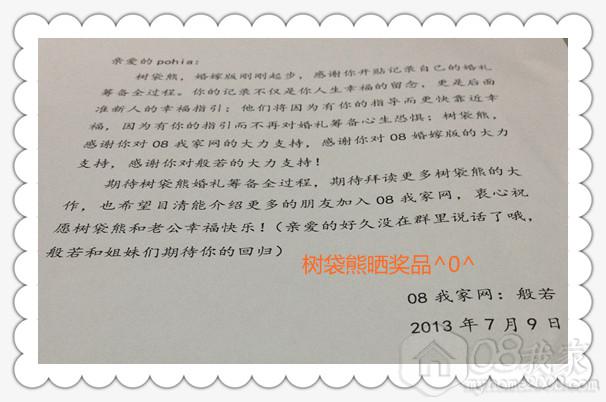 亲爱的 pohia：
树袋熊，婚嫁版刚刚起步，感谢你开贴记录自己的婚礼
筹备全过程。你的记录不仅是你人生幸福的留念，更是后面
准新人的幸福指引；他们将因为有你的指导而更快靠近幸
福，因为有你的指引而不再对婚礼筹备心生恐惧；树袋熊，
感谢你对 08 我家网的大力支持，感谢你对 08 婚嫁版的大力
支持，感谢你对般若的大力支持！
期待树袋熊婚礼筹备全过程，期待拜读更多树袋熊的大
作，也希望目清能介绍更多的朋友加入 08 我家网，衷心祝
愿树袋熊和老公幸福快乐！（亲爱的好久没在群里说话了哦，
般若和姐妹们期待你的回归）
树袋熊晒奖品^0^
08 我家网：般若
2013 年 7 月 9 日
08我家
myhome2008.com